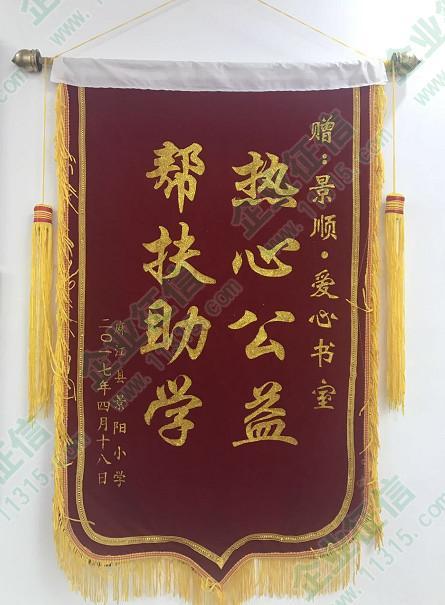 赠：景顺·爱心书室
热心公益
帮扶助学
麻江县景阳小学
二〇一七年四月十八日
企业征信
www.11315.com